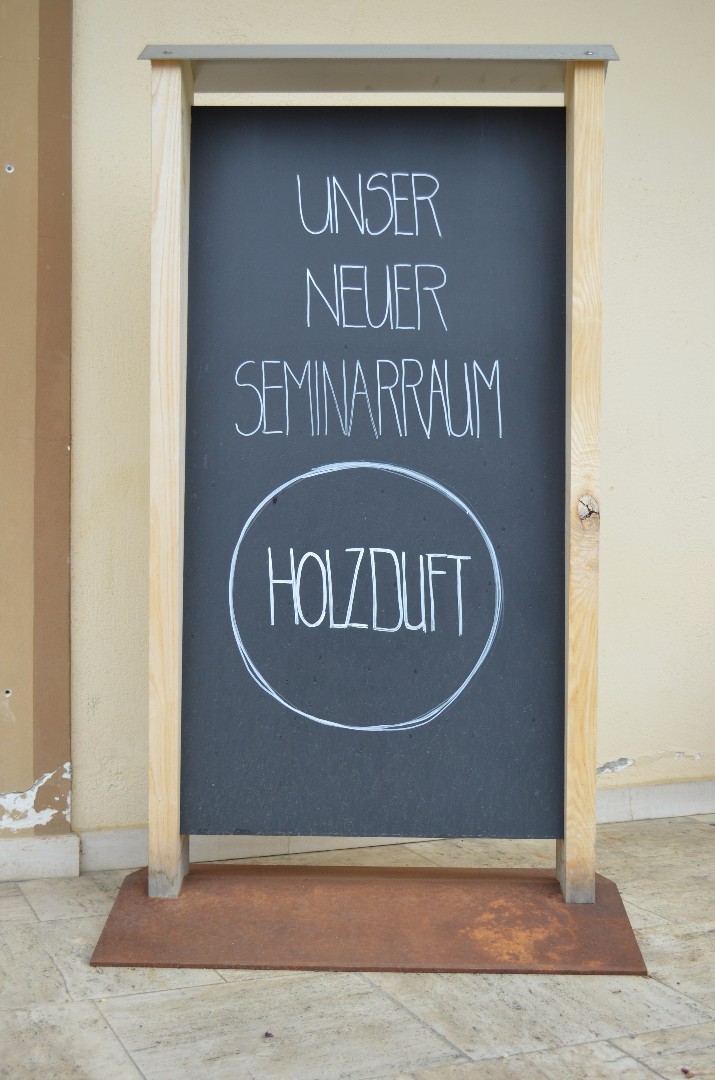 UNSER
NEUER
SEMINARRAUM
HOLZDUFT